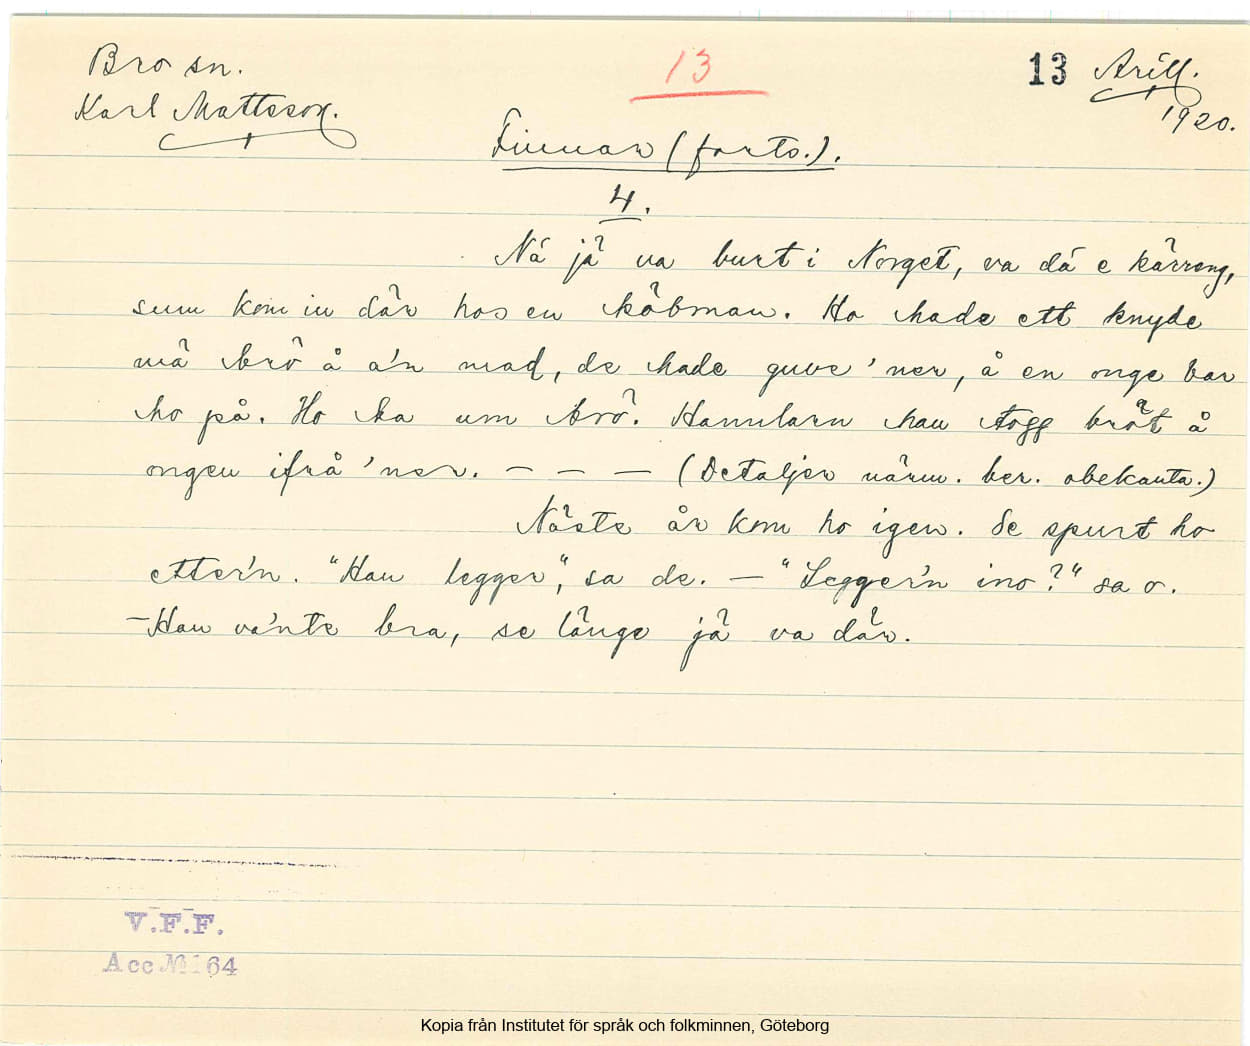 Bro sn.
Karl Mattsson.
13
13 Arill.
1920.
Finnar (forts.).
4.
Nå jä va burt i Norget, va då e kärreng,
sum kom in där hos en köbman. Ho hade ett knyde
mä brö å a'n mad, de hade guve 'ner, å en onge bar
ho på. Ho ba um brö. Hannlarn han togg bröt å
ongen ifrå 'ner. — — — (Detaljer närm. ber. obekanta.)
Näste år kom ho igen. Se spurt ho
etter'n. "Han legger", sa de. — "Legger'n ino?" sa o.
— Han va'nte bra, se länge jä va där.
V.F.F.
Acc № 164
Kopia från Institutet för språk och folkminnen, Göteborg